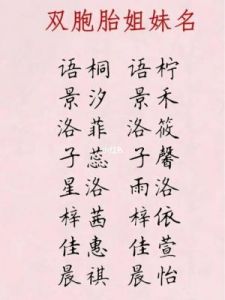 双胞胎姐妹名
语桐 语柠
景汐 景禾
洛菲 洛筱
子蕊 子馨
星洛 雨洛
梓茜 梓依
佳惠 佳萱
晨祺 晨怡